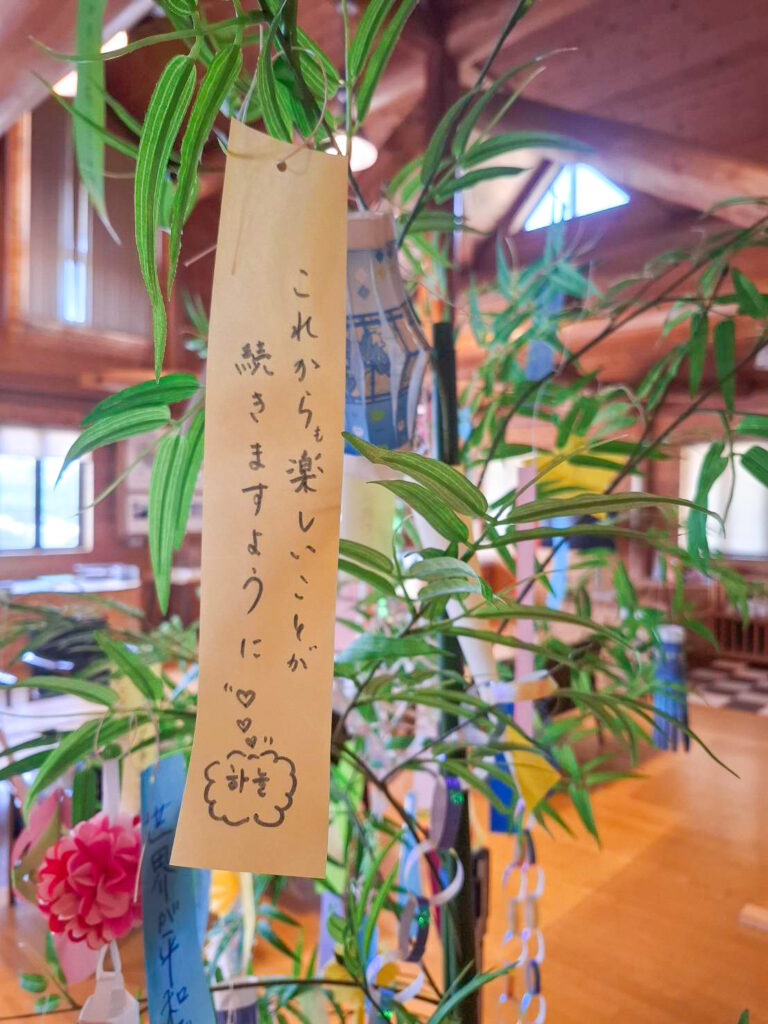 これからも楽しいことが
続きますように
하늘
世界が平和